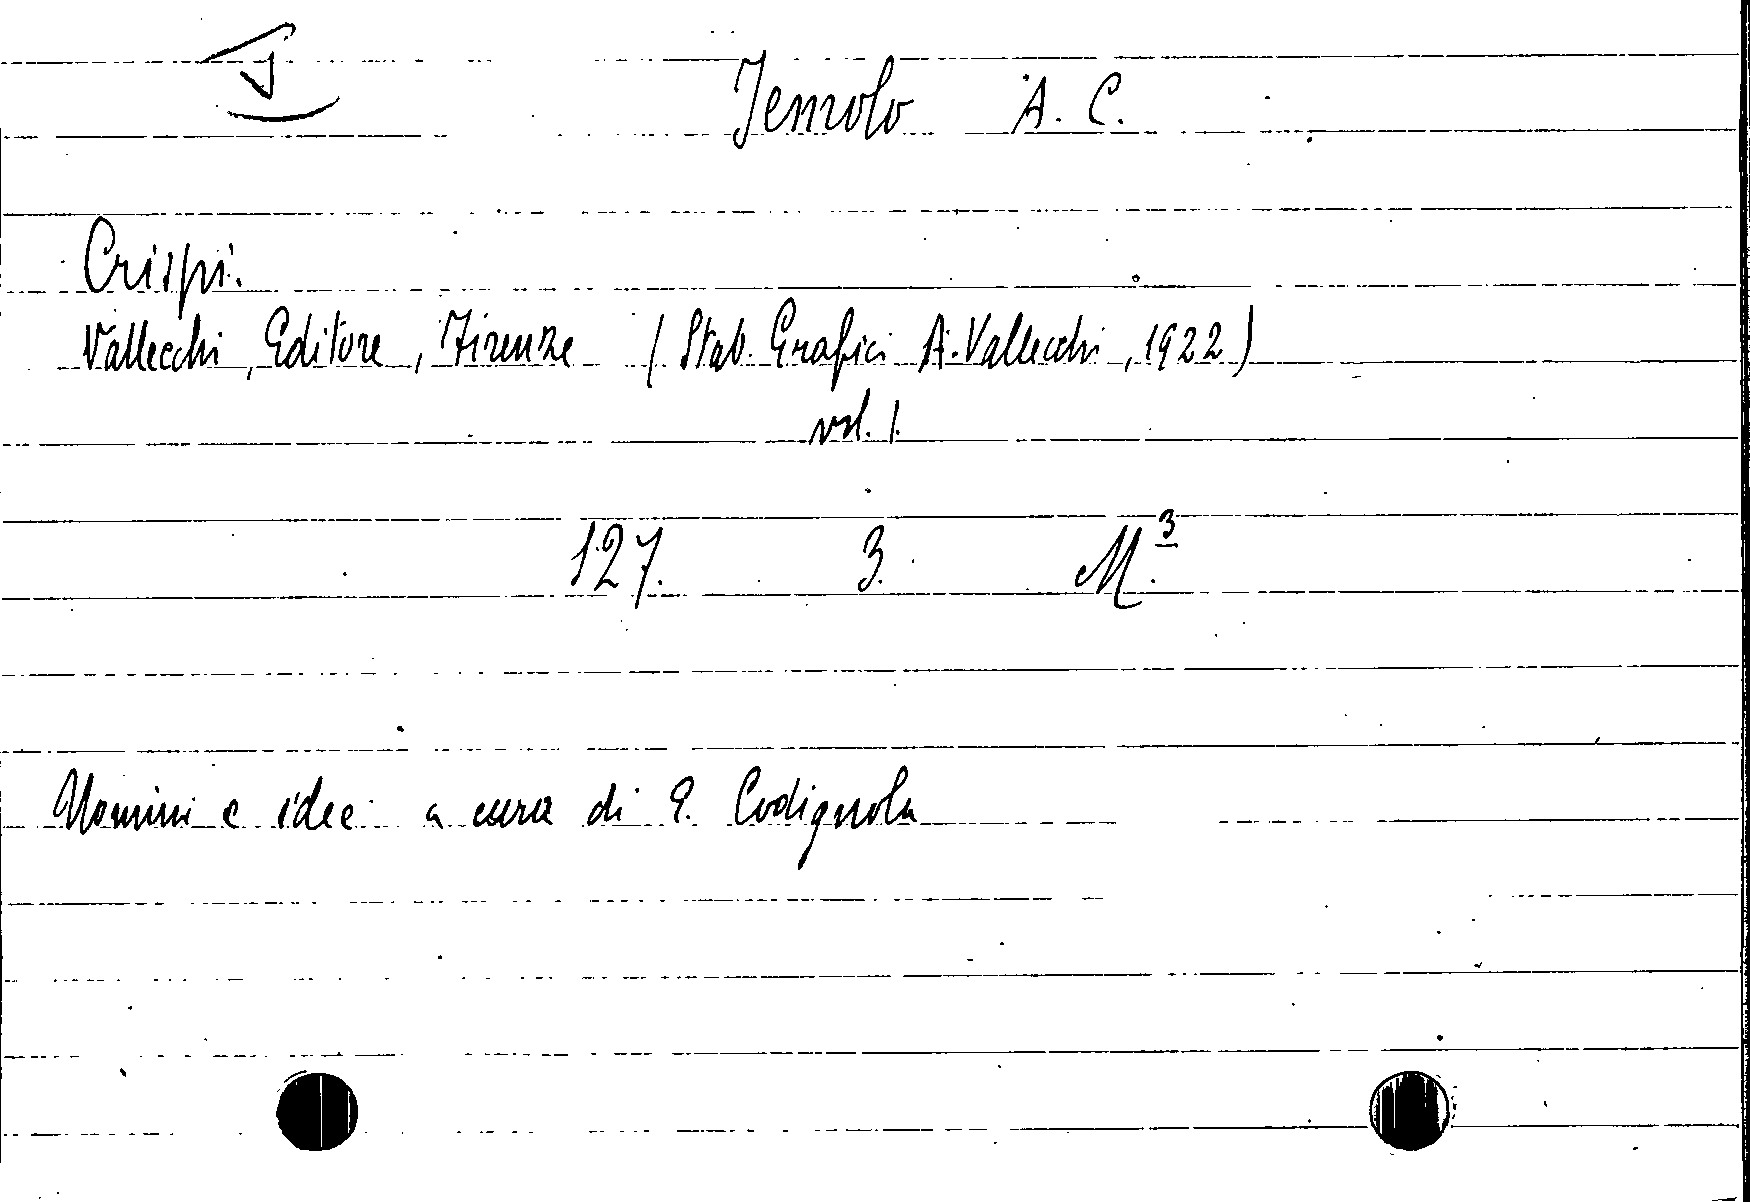 Jemolo A. C.
Crispi.
Vallecchi, Editore, Firenze (Stab. Grafici A. Vallecchi, 1922)
vol. 1.
127. 3. M.3
Uomini e idee a cura di E. Codignola